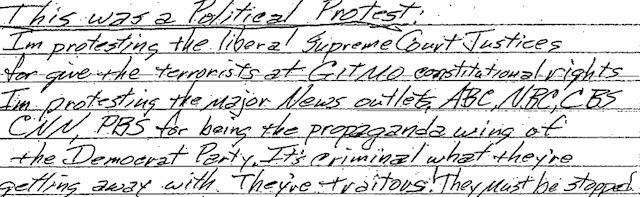 This was a Political Protest:
Im protesting the liberal Supreme Court Justices
for give the terrorists at GITMO constitutional rights
Im protesting the Major News outlets, ABC, NBC, CBS
CNN, PBS for being the propaganda wing of
the Democrat Party. It's criminal what they're
getting away with. They're traitors! They Must be stopped